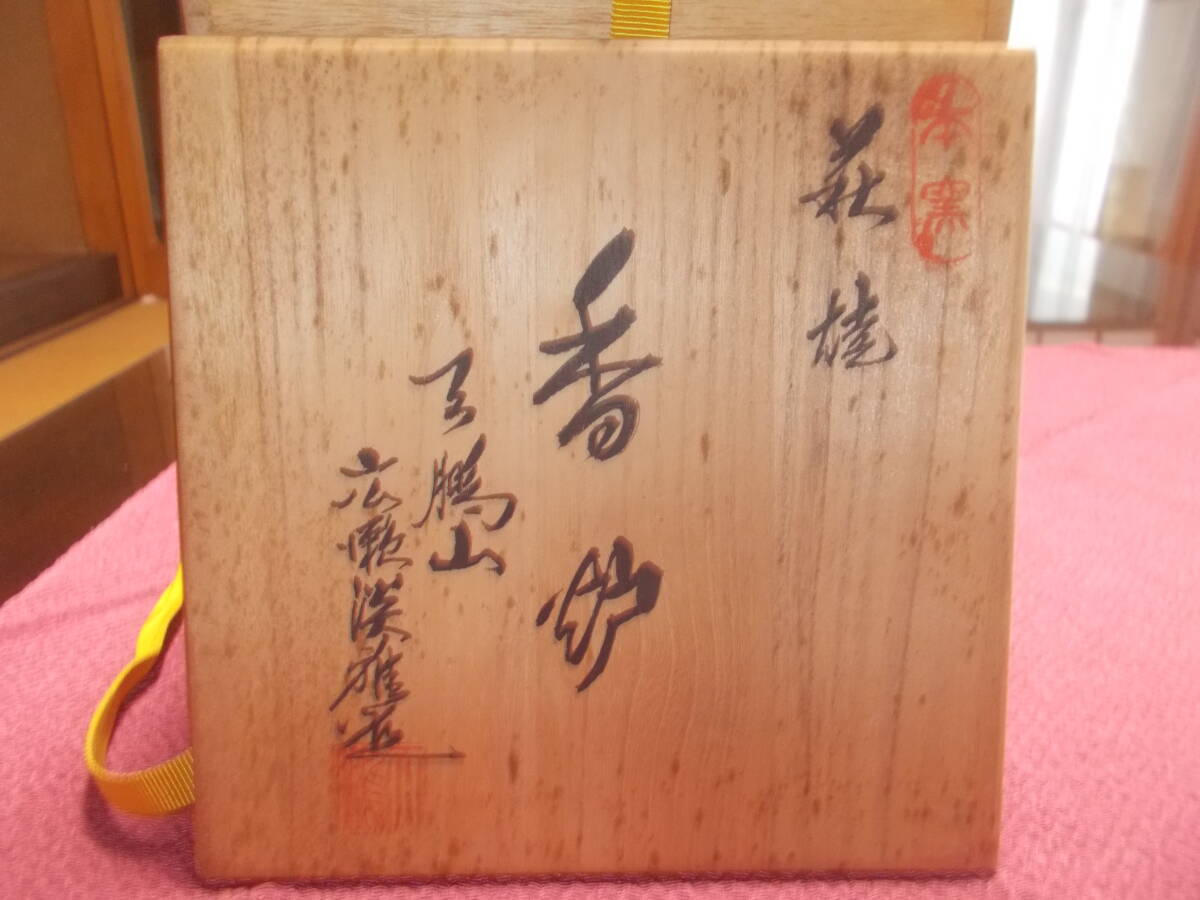 本窯
萩焼
香炉
天鵬山
広瀬淡雅造